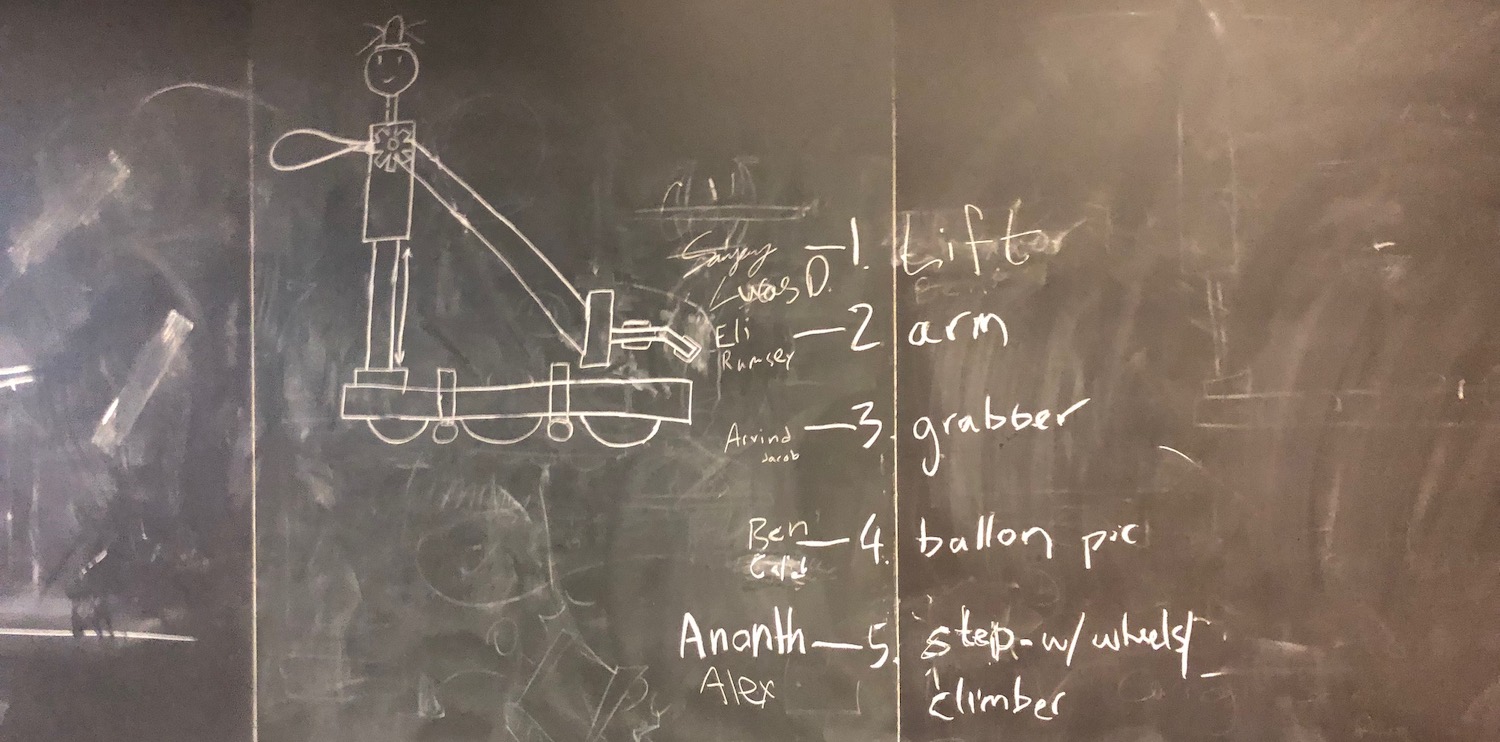 1. Lift
Lucas D.
Eli — 2 arm
Rumsey
Arvind — 3. grabber
Jacob
Ben — 4. ballon pic
Ananth — 5. step-w/ wheels/
Alex climber